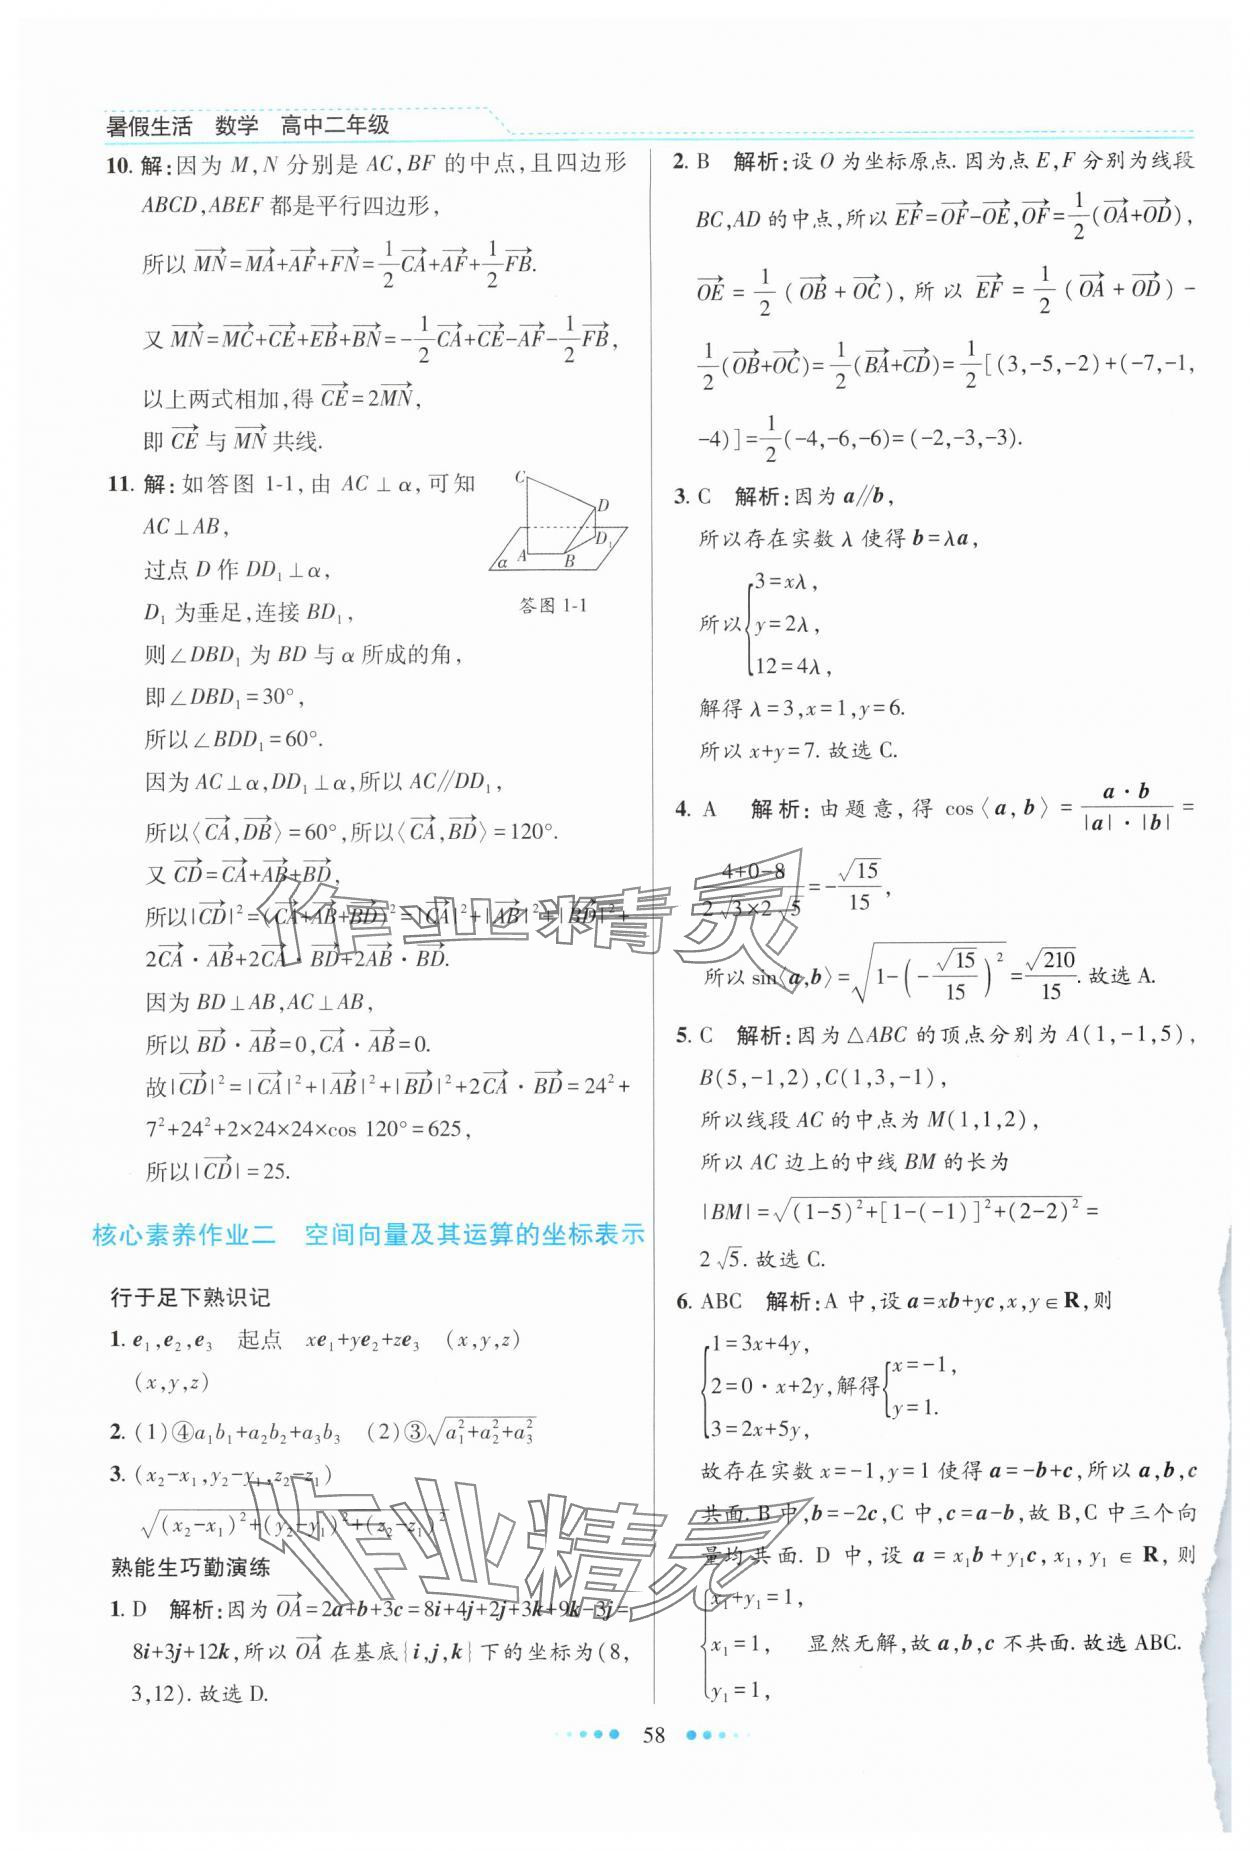 暑假生活 数学 高中二年级
10. 解:因为 M,N 分别是 AC,BF 的中点,且四边形
ABCD,ABEF 都是平行四边形,
所以 $\overrightarrow{MN}=\overrightarrow{MA}+\overrightarrow{AF}+\overrightarrow{FN}=\frac{1}{2}\overrightarrow{CA}+\overrightarrow{AF}+\frac{1}{2}\overrightarrow{FB}$.
又 $\overrightarrow{MN}=\overrightarrow{MC}+\overrightarrow{CE}+\overrightarrow{EB}+\overrightarrow{BN}=-\frac{1}{2}\overrightarrow{CA}+\overrightarrow{CE}-\overrightarrow{AF}-\frac{1}{2}\overrightarrow{FB}$,
以上两式相加,得 $\overrightarrow{CE}=2\overrightarrow{MN}$,
即 $\overrightarrow{CE}$ 与 $\overrightarrow{MN}$ 共线.
11. 解:如答图 1-1,由 AC⊥α,可知
AC⊥AB,
过点 D 作 DD₁⊥α,
D₁ 为垂足,连接 BD₁,
则∠DBD₁ 为 BD 与 α 所成的角,
即∠DBD₁=30°,
所以∠BDD₁=60°.
C
D
A
B
D₁
α
答图 1-1
因为 AC⊥α,DD₁⊥α,所以 AC∥DD₁,
所以⟨$\overrightarrow{CA}$,$\overrightarrow{DB}$⟩=60°,所以⟨$\overrightarrow{CA}$,$\overrightarrow{BD}$⟩=120°.
又 $\overrightarrow{CD}=\overrightarrow{CA}+\overrightarrow{AB}+\overrightarrow{BD}$,
所以|$\overrightarrow{CD}$|²=($\overrightarrow{CA}+\overrightarrow{AB}+\overrightarrow{BD}$)²=|$\overrightarrow{CA}$|²+|$\overrightarrow{AB}$|²+|$\overrightarrow{BD}$|²+
2$\overrightarrow{CA}$·$\overrightarrow{AB}$+2$\overrightarrow{CA}$·$\overrightarrow{BD}$+2$\overrightarrow{AB}$·$\overrightarrow{BD}$.
因为 BD⊥AB,AC⊥AB,
所以 $\overrightarrow{BD}$·$\overrightarrow{AB}$=0,$\overrightarrow{CA}$·$\overrightarrow{AB}$=0.
故|$\overrightarrow{CD}$|²=|$\overrightarrow{CA}$|²+|$\overrightarrow{AB}$|²+|$\overrightarrow{BD}$|²+2$\overrightarrow{CA}$·$\overrightarrow{BD}$=24²+
7²+24²+2×24×24×cos 120°=625,
所以|$\overrightarrow{CD}$|=25.
核心素养作业二 空间向量及其运算的坐标表示
行于足下熟识记
1. e₁,e₂,e₃ 起点 xe₁+ye₂+ze₃ (x,y,z)
(x,y,z)
2. (1)④a₁b₁+a₂b₂+a₃b₃ (2)③$\sqrt{a_1^2+a_2^2+a_3^2}$
3. (x₂-x₁,y₂-y₁,z₂-z₁)
$\sqrt{(x_2-x_1)^2+(y_2-y_1)^2+(z_2-z_1)^2}$
熟能生巧勤演练
1. D 解析:因为 $\overrightarrow{OA}$=2a+b+3c=8i+4j+2j+3k+9k-3j=
8i+3j+12k,所以 $\overrightarrow{OA}$ 在基底{i,j,k}下的坐标为(8,
3,12).故选 D.
2. B 解析:设 O 为坐标原点.因为点 E,F 分别为线段
BC,AD 的中点,所以 $\overrightarrow{EF}=\overrightarrow{OF}-\overrightarrow{OE}$,$\overrightarrow{OF}=\frac{1}{2}(\overrightarrow{OA}+\overrightarrow{OD})$,
$\overrightarrow{OE}=\frac{1}{2}(\overrightarrow{OB}+\overrightarrow{OC})$,所以 $\overrightarrow{EF}=\frac{1}{2}(\overrightarrow{OA}+\overrightarrow{OD})-$
$\frac{1}{2}(\overrightarrow{OB}+\overrightarrow{OC})=\frac{1}{2}(\overrightarrow{BA}+\overrightarrow{CD})=\frac{1}{2}$[(3,-5,-2)+(-7,-1,
-4)]=$\frac{1}{2}$(-4,-6,-6)=(-2,-3,-3).
3. C 解析:因为 a∥b,
所以存在实数 λ 使得 b=λa,
所以$\begin{cases}3=xλ,\\y=2λ,\\12=4λ,\end{cases}$
解得 λ=3,x=1,y=6.
所以 x+y=7.故选 C.
4. A 解析:由题意,得 cos⟨a,b⟩=$\frac{a·b}{|a|·|b|}$=
$\frac{4+0-8}{2\sqrt{3}×2\sqrt{5}}=-\frac{\sqrt{15}}{15}$,
所以 sin⟨a,b⟩=$\sqrt{1-\left(-\frac{\sqrt{15}}{15}\right)^2}=\frac{\sqrt{210}}{15}$.故选 A.
5. C 解析:因为△ABC 的顶点分别为 A(1,-1,5),
B(5,-1,2),C(1,3,-1),
所以线段 AC 的中点为 M(1,1,2),
所以 AC 边上的中线 BM 的长为
|BM|=$\sqrt{(1-5)^2+[1-(-1)]^2+(2-2)^2}$=
2$\sqrt{5}$.故选 C.
6. ABC 解析:A 中,设 a=xb+yc,x,y∈R,则
$\begin{cases}1=3x+4y,\\2=0·x+2y,\\3=2x+5y,\end{cases}$解得$\begin{cases}x=-1,\\y=1.\end{cases}$
故存在实数 x=-1,y=1 使得 a=-b+c,所以 a,b,c
共面.B 中,b=-2c,C 中,c=a-b,故 B,C 中三个向
量均共面.D 中,设 a=x₁b+y₁c,x₁,y₁∈R,则
$\begin{cases}x_1+y_1=1,\\x_1=1,\\y_1=1,\end{cases}$ 显然无解,故 a,b,c 不共面.故选 ABC.
58
作业精灵
作业精灵